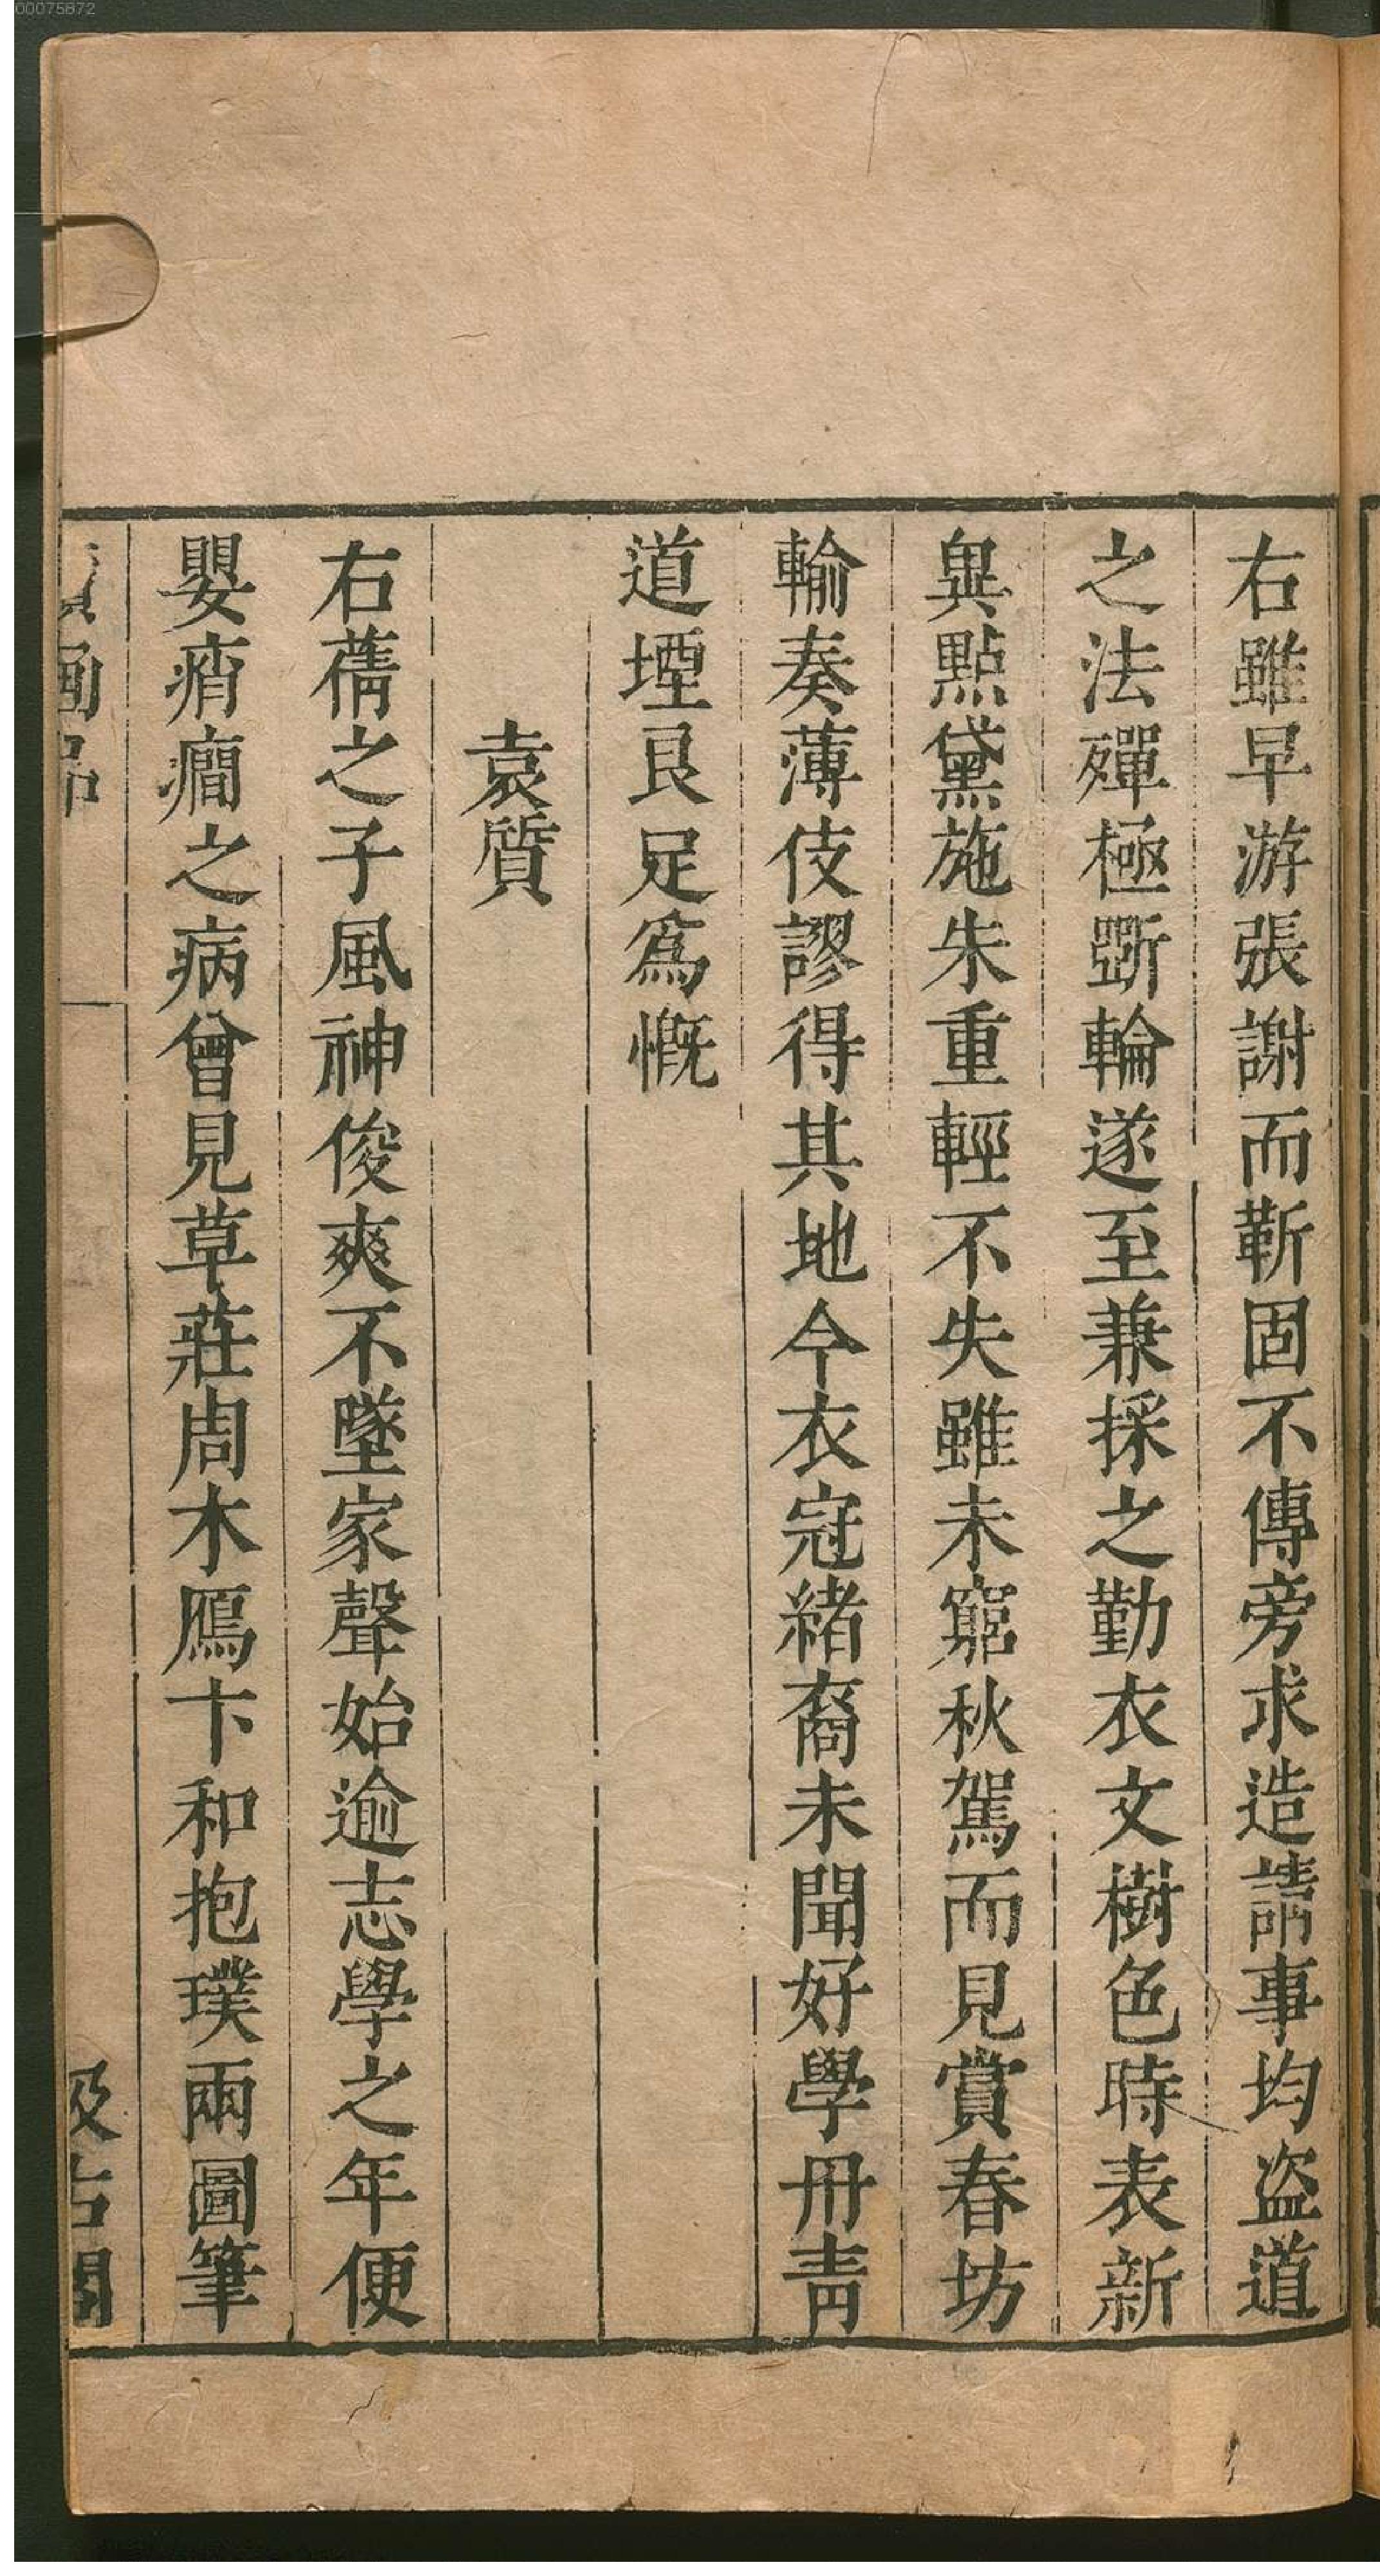 00075872
右雖早游張謝而靳固不傳旁求造請事均盜道
之法殫極斲輪遂至兼採之勤衣文樹色時表新
異點黛施朱重輕不失雖未窮秋駕而見賞春坊
輸奏薄伎謬得其地今衣冠緒裔未聞好學丹青
道堙良足爲慨
袁質
右蒨之子風神俊爽不墜家聲始逾志學之年便
嬰痟癎之病曾見草莊周木鴈卞和抱璞兩圖筆
續畫品
汲古閣